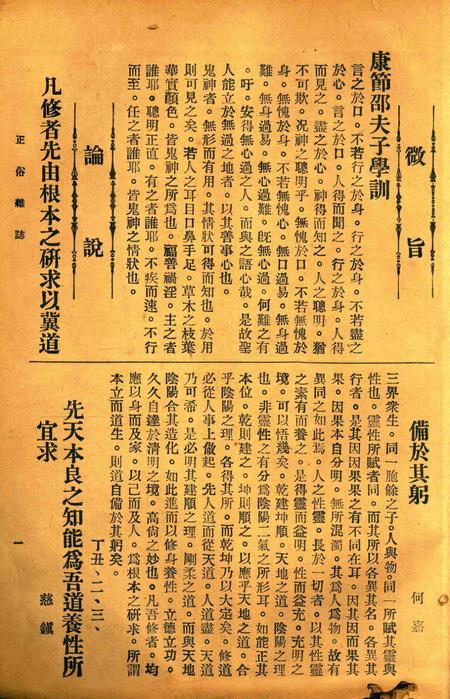 微旨
康節邵夫子學訓
言之於口。不若行之於身。行之於身。不若盡之
於心。言之於口。人得而聞之。行之於身。人得
而見之。盡之於心。神得而知之。人之聰明。猶
不可欺。况神之聰明乎。無愧於口。不若無愧於
身。無愧於身。不若無愧心。無口過易。無身過
難。無身過易。無心過難。旣無心過。何難之有
。吁。安得無心過之人。而與之語心哉。是故聖
人能立於無過之地者。以其善事心也。
鬼神者。無形而有用。其情狀可得而知也。於用
則可見之矣。若人之耳目口鼻手足。草木之枝葉
華實顏色。皆鬼神之所爲也。福善禍淫。主之者
誰耶。聰明正直。有之者誰耶。不疾而速。不行
而至。任之者誰耶。皆鬼神之情狀也。
論說
凡修者先由根本之硏求以冀道
備於其躬
何嘉
三界衆生。同一胞餘之子。人與物。同一所賦其靈與
性也。靈性所賦者同。而其所以各異其名。各異其
行者。是其因因果果之有不同在耳。因其因而果其
果。因果本自分明。無所混濁。其爲人爲物。故有
異同之如此焉。人之性靈。長於一切者。以其性靈
之素有而養之。是得靈而益明。性而益充。充明之
境。可以悟幾矣。乾建坤順。天地之道。陰陽之理
也。非靈性之有分爲陰陽二氣之所形耳。如能正其
本位。乾則建之。坤則順之。以應乎天地之道。合
乎陰陽之理。各得其所。而乾坤乃以大定矣。修道
必從人事上做起。先人道而從天道。人道盡。天道
乃可希。是必明其建順之理。剛柔之道。而與天地
陰陽合其造化。如此進而以修身養性。立德立功。
久久自達於清明之境。高尚之妙也。凡吾修者。均
應以身而及家。以己而及人。爲根本之硏求。所謂
本立而道生。則道自備於其躬矣。
丁丑、二、三、
先天本良之知能爲吾道養性所
宜求
慈鎭
正俗雜誌
一